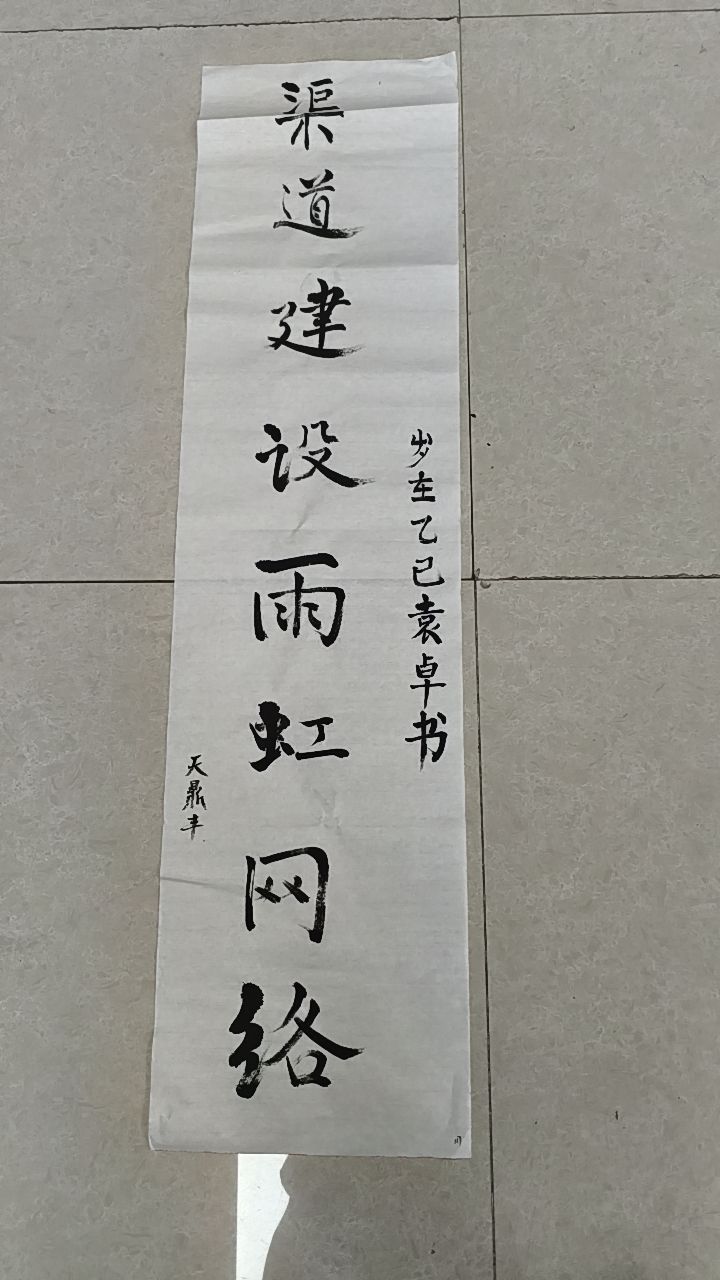 岁在乙巳袁卓书
渠道建设雨虹网络
天鼎丰